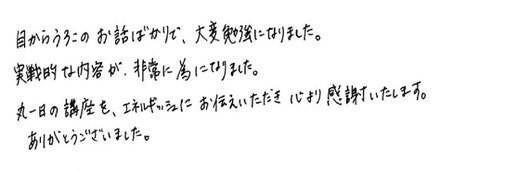 目からうろこのお話ばかりで、大変勉強になりました。
実戦的な内容が、非常に為になりました。
丸一日の講座を、エネルギッシュにお伝えいただき心より感謝いたします。
ありがとうございました。